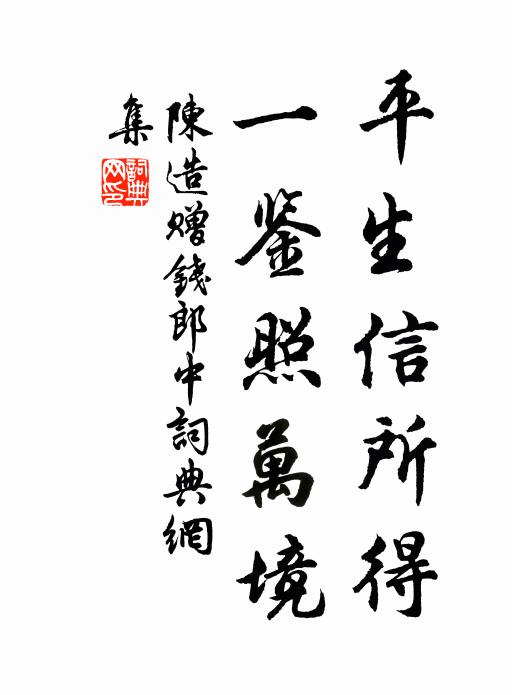 平生信所得
一鉴照萬境
陳造赠錢郎中詞典網
集
詞典
网印